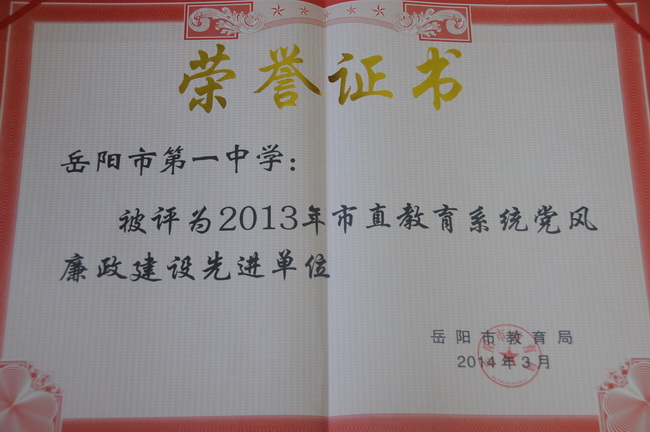 荣誉证书
岳阳市第一中学：
被评为2013年市直教育系统党风
廉政建设先进单位
岳阳市教育局
2014年3月